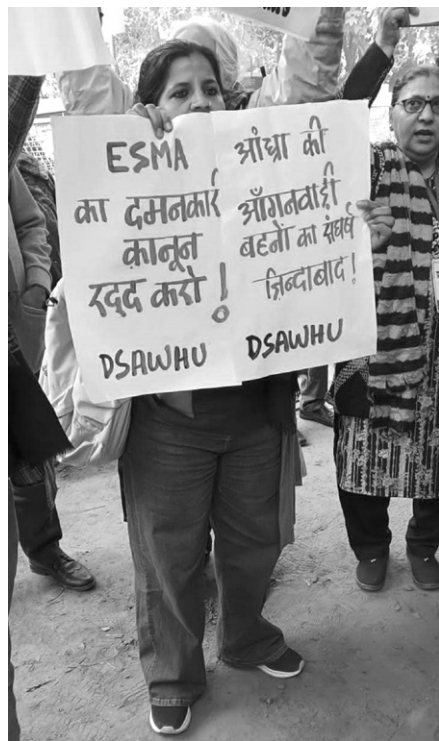 ESMA
का दमनकारी
क़ानून
रद्द करो!
DSAWHU
आंध्रा की
आँगनवाड़ी
बहनों का संघर्ष
ज़िन्दाबाद!
DSAWHU